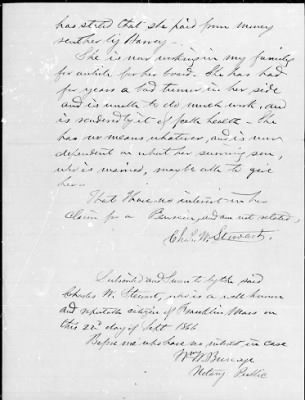 has stated that she paid from money
sent her by Harvey —
She is now working in my family
for awhile for her board. She has had
for years a bad tumor in her side
and is unable to do much work, and
is rendered by it of poor health — She
has no means whatever, and is now
dependent on what her surviving son,
who is married, may be able to give
her —
That I have no interest in her
claim for a Pension, and am not related.
Chas. W. Stewart.
Subscribed and sworn to by the said
Charles W. Stewart, who is a well known
and reputable citizen of Franklin, Mass on
this 22nd day of Sept 1866
Before me who have no interest in case
Wm
Notary Public